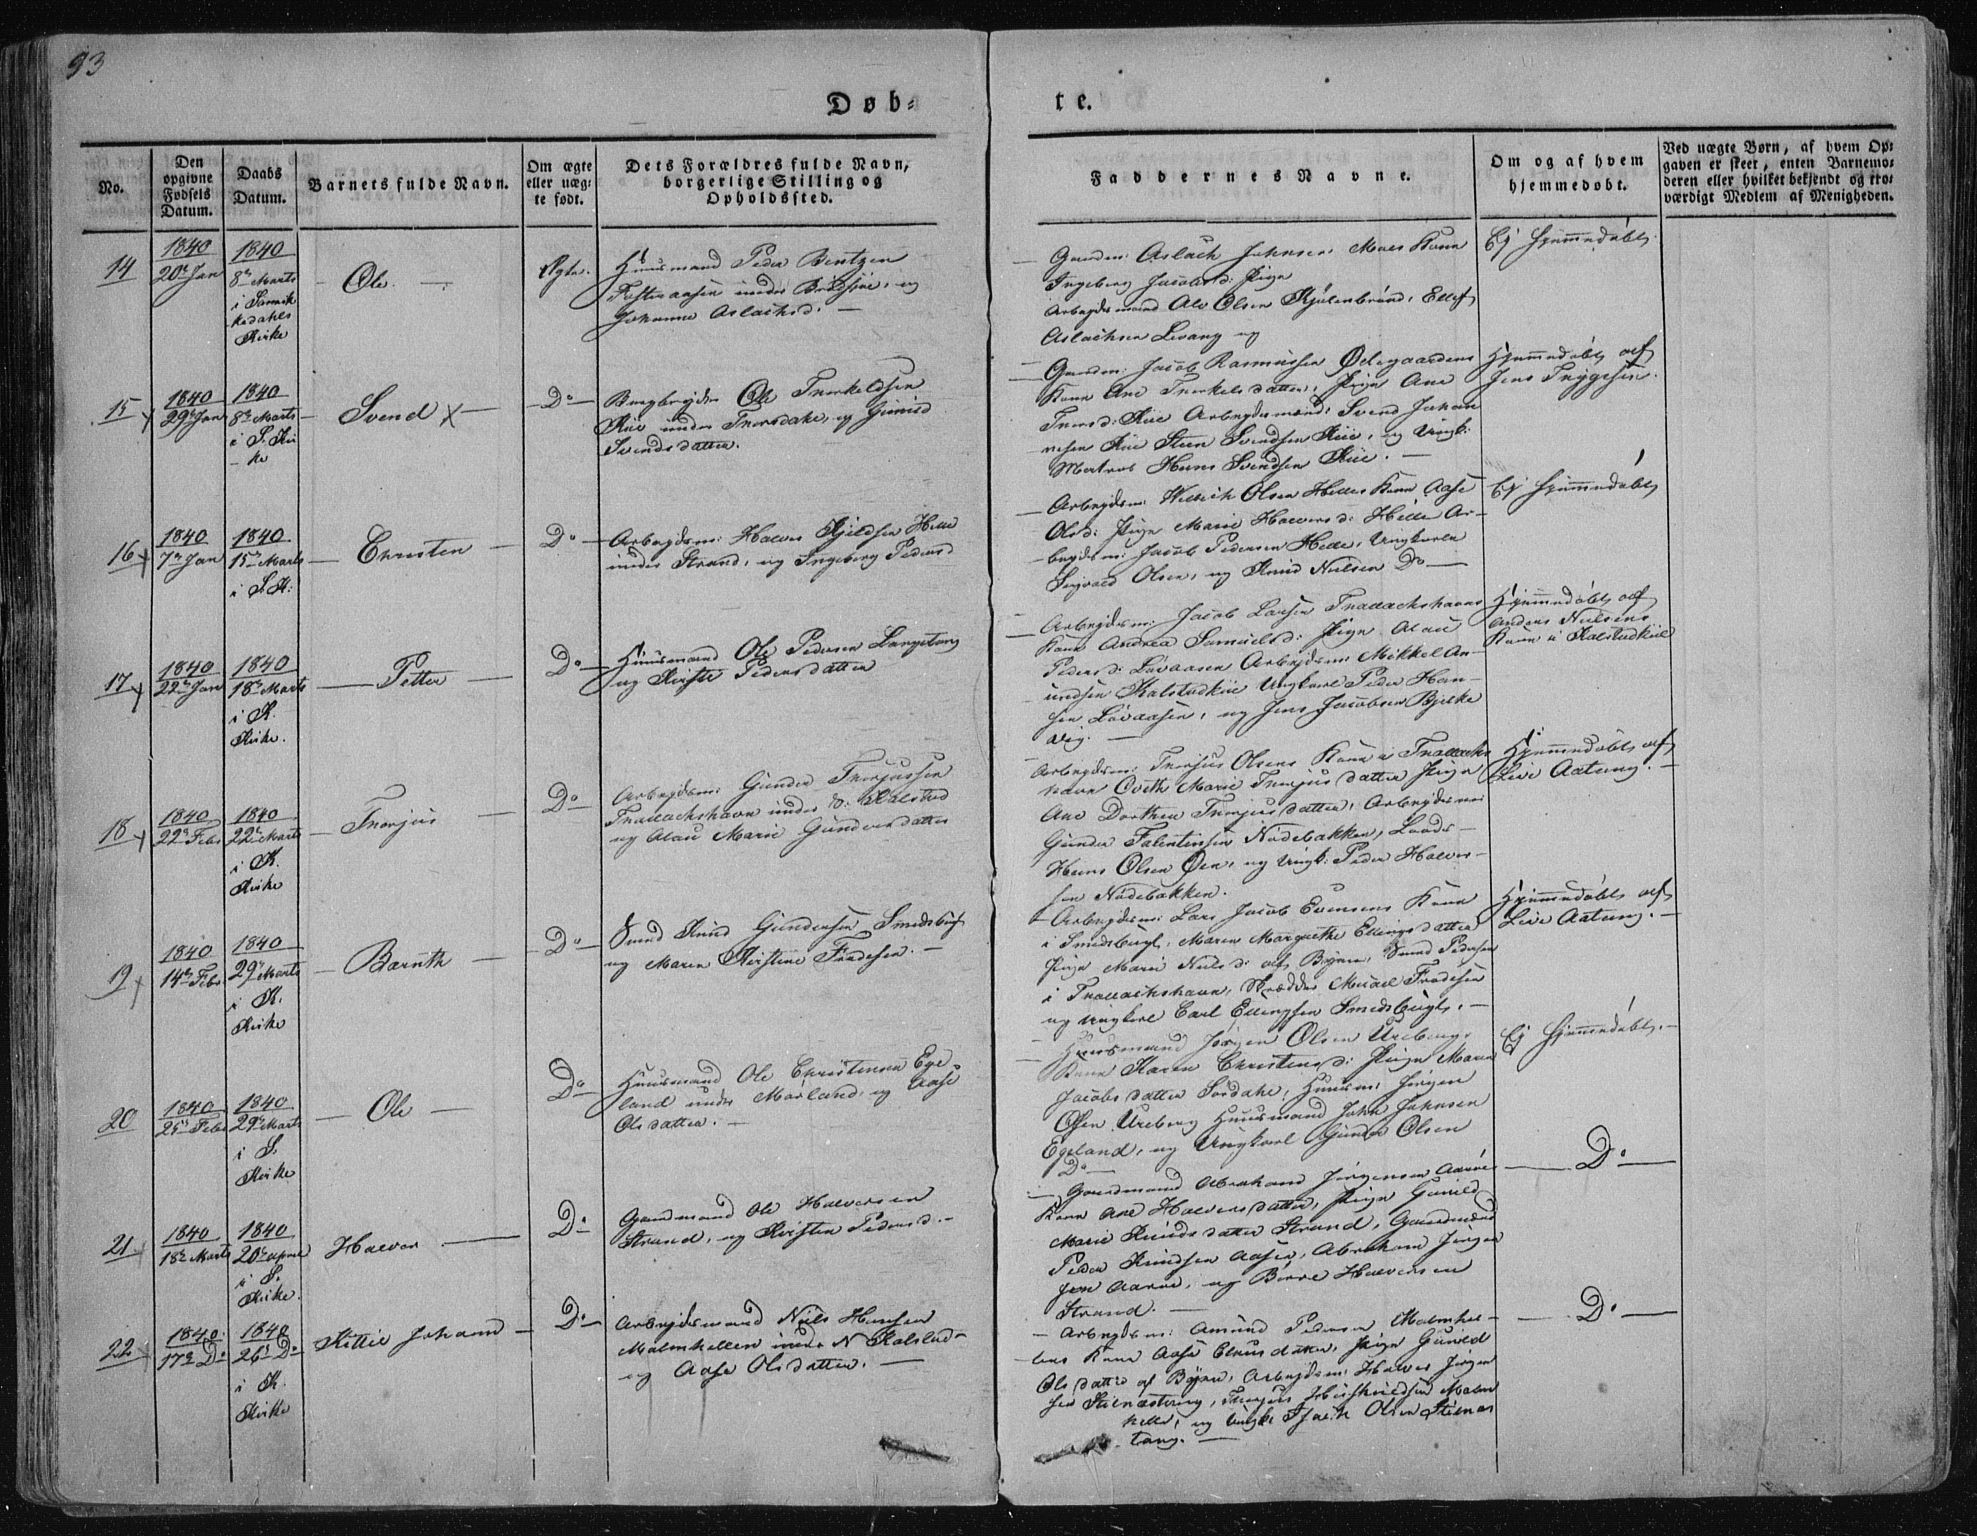 93
Døb-
te.
No.
Den opgivne Fødsels Datum.
Daabs Datum.
Barnets fulde Navn.
Om ægte eller uægte født.
Dets Forældres fulde Navn, borgerlige Stilling og Opholdssted.
Faddernes Navne.
Om og af hvem hjemmedøbt.
Ved uægte Børn, af hvem Opgaven er skeet, enten Barnemoderen eller hvilket bekjendt og troværdigt Medlem af Menigheden.
14
1840
20de Jan
1840
8de Marts
i Sannikedahls
Kirke
Ole.
Ægte.
Huusmand Peder Bentzen
under Bredsjøe, og
Johanne Aslachsd.
Gaardm: Aslach Johnsen Moes Kone
Ingeborg Jacobsd: Pige
Arbeydsmand Ole Olsen Kjølebrønd, Ellef
Aslachsen Levang og
Ej hjemmedøbt.
15
1840
29de Jan
1840
8de Marts
i S. Kirke
Svend
Do
Bergbryder Ole Therkeldsen
Kiie under Thorsdahl, og Gunild
Svendsdatter.
Gaardm: Jacob Rasmussen Ødegaardens
Kone Ane Therkelsdatter, Pige Ane
Thorsd: Kiie Arbeydsmænd: Svend Johannesen
Kiie Steen Svendsen Kiie, og Ungk:
Matros Hans Svendsen Kiie.
Hjemmedøbt af
Jens Tryggesen.
16
1840
7de Jan
1840
15de Marts
i S. K:
Christen
Do
Arbeydsm: Halvor Kjeldsen Helle
under Strand, og Ingeborg Pedersd
Arbeydsm: Olsen Helles Kone Aase
Olsd: Pige Marie Halvorsd: Helle Arbeydsm:
Jacob Pedersen Helle, Ungkarle
Sigvald Olsen, og Knud Nielsen Do
Ej hjemmedøbt
17
1840
22de Jan
1840
18de Marts
i K.
Kirke.
Petter
Do
Huusmand Ole Pedersen Langetang
og Kirsti Pedersdatter
Arbeydsm: Jacob Larsen Trallachshavns
Kone Andrea Samuelsd: Pige Olau
Pedersd: Løvaasen Arbeydsm: Mikkel Amundsen
Kalstadkiil Ungkarl Peder Hansen
Løvaasen, og Jens Jacobsen Bjelkevig.
Hjemmedøbt af
Anders Nielsens
Kone i Kalstadkiil
18
1840
22de Febr
1840
22de Marts
i K.
Kirke
Thorjus
Do
Arbeydsm: Gunder Thorjussen
Trallachshavn under Kalstad
og Olau Marie Gundersdatter
Arbeydsm: Thorjus Olsens Kone i Trallachshavn
Marie Thorjusdatter Pige
Ane Dorthea Thorjusdatter, Arbeydsm:
Gunder Falentinsen Nødebakken, Lods
Hans Olsen Øen, og Ungk: Peder Halvorsen
Nødebakken.
Hjemmedøbt af
Live Aatang.
19
1840
14de Febr
1840
29de Marts
i K.
Kirke
Barnth
Do
Smed Knud Gundersen Smedsbugt
og Maren Kirstine Frodesen.
Arbeydsm: Lars Jacob Evensens Kone
i Smedsbugt, Maren Margrethe Ellingsdatter
Pige Marie Nielsd: af Byen, Smed Pedersen
i Trallachshavn, Skrædder Frodesen
og Ungkarl Carl Ellingsen Smedsbugt.
Hjemmedøbt af
Live Aatang.
20
1840
25de Febr
1840
29de Marts
i S.
Kirke
Ole
Do
Huusmand Ole Christensen Egeland
under Mørland, og Aase
Olsdatter.
Huusmand Jørgen Olsen Urebergs
Kone Karen Christensd: Pige Maren
Jacobsdatter Sørdahl, Huusm: Jørgen
Olsen Ureberg Huusmand John Johnsen
Egeland, og Ungkarl Gunder Olsen
Do
Ej hjemmedøbt.
21
1840
18de Marts
1840
20de April
i S.
Kirke.
Halvor
Do
Gaardmand Ole Halvorsen
Strand, og Kirsten Pedersd.
Gaardmand Abraham Jørgensen Aarøes
Kone Ane Halvorsdatter, Pige Gunild
Marie Knudsdatter Strand, Gaardmænd
Peder Knudsen Aasen, Abraham Jørgensen
Aarøe, og Børre Halvorsen
Strand.
Do
22
1840
17de Do
1840
26de Do
i K.
Kirke
Kittie Johann
Do
Arbeydsmand Niels Hansen
Malmhellen under N Kalstad
og Aase Olsdatter.
Arbeydsm: Amund Pedersen Malmhellens
Kone Aase Clausdatter, Pige Gunild
Olsdatter af Byen, Arbeydsm: Halvor Jørgensen
Steenestang, Thorjus Malmhellen,
og Ungk: Isach Olsen Steenestang.
Do